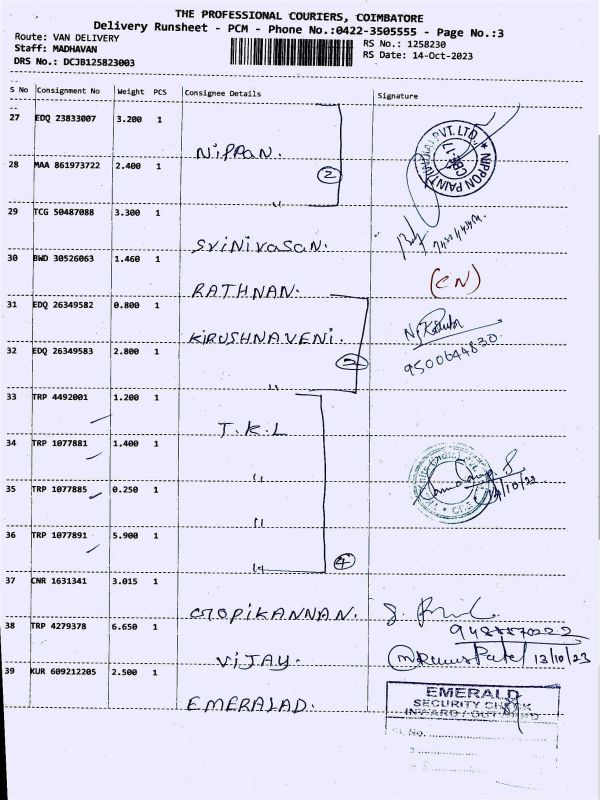 THE PROFESSIONAL COURIERS, COIMBATORE
Delivery Runsheet - PCM - Phone No.:0422-3505555 - Page No.:3
Route: VAN DELIVERY
Staff: MADHAVAN
DRS No.: DCJB125823003
RS No.: 1258230
RS Date: 14-Oct-2023
S No Consignment No Weight PCS Consignee Details Signature
27 EDQ 23833007 3.200 1
NiPPON.
28 MAA 861973722 2.400 1
②
"
29 TCG 50487088 3.300 1
SRINIVASAN.
30 BWD 30526063 1.460 1
(CN)
RATHNAN.
31 EDQ 26349582 0.800 1
KiRUSHNAVENi.
9500644830
32 EDQ 26349583 2.800 1
"
33 TRP 4492001 1.200 1
T.K.L
34 TRP 1077881 1.400 1
"
35 TRP 1077885 0.250 1
14/10/23
"
36 TRP 1077891 5.900 1
" ④
37 CNR 1631341 3.015 1
GOPiKANNAN.
38 TRP 4279378 6.650 1
ViJAY.
13/10/23
39 KUR 609212205 2.500 1
EMERALAD.
EMERALD
SECURITY CHECK
INWARD / OUTWARD
No.